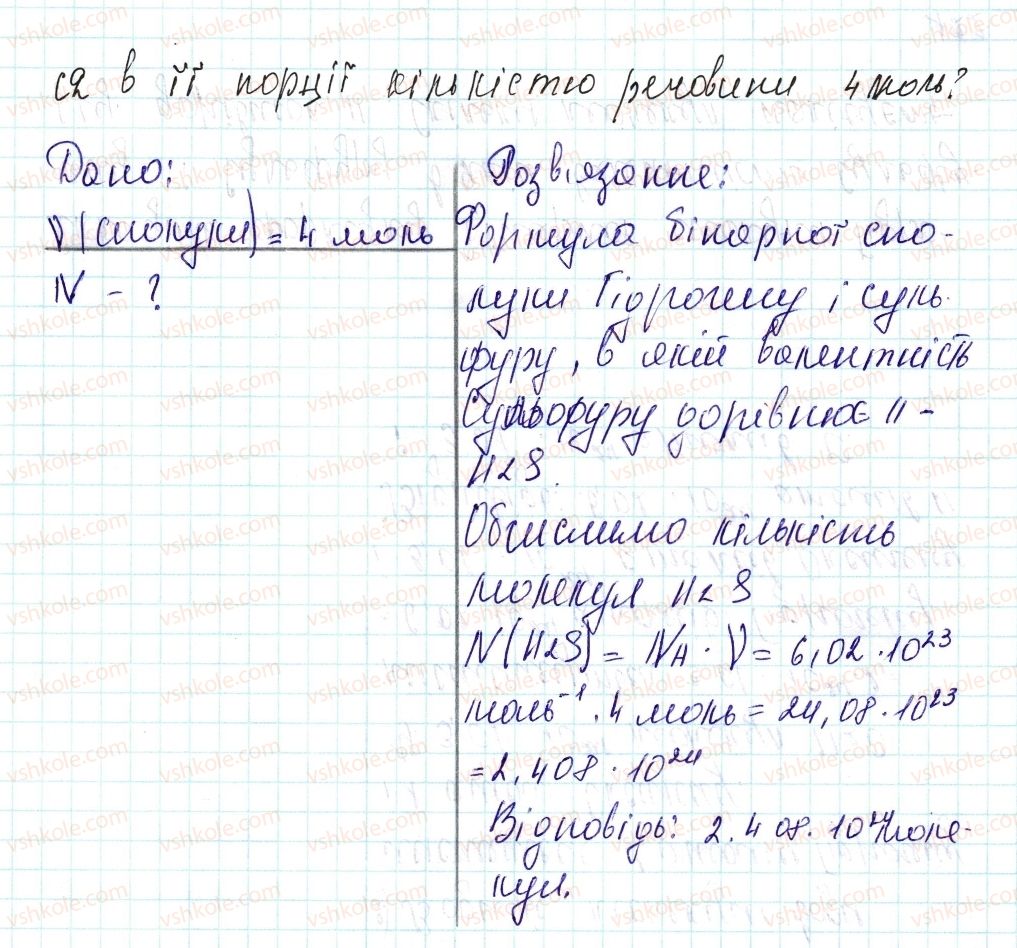 ся в її порції кількістю речовини 4 моль?
Дано:
ν(сполуки) = 4 моль
N - ?
Розв'язання:
Формула бінарної спо-
луки Гідрогену і Суль-
фуру, в якій валентність
Сульфуру дорівнює II -
H2S.
Обчислимо кількість
молекул H2S
N(H2S) = NA · ν = 6,02 · 10²³
моль⁻¹ · 4 моль = 24,08 · 10²³
= 2,408 · 10²⁴
Відповідь: 2,408 · 10²⁴ моле-
кул.